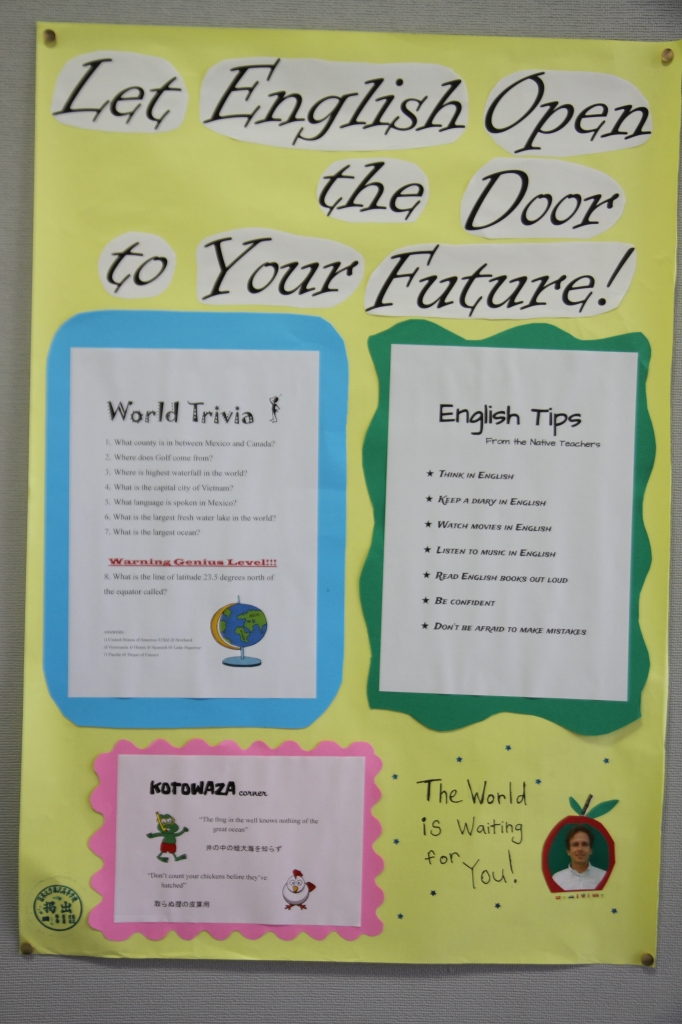 Let English Open
the Door
to Your Future!
World Trivia
1. What county is in between Mexico and Canada?
2. Where does Golf come from?
3. Where is highest waterfall in the world?
4. What is the capital city of Vietnam?
5. What language is spoken in Mexico?
6. What is the largest fresh water lake in the world?
7. What is the largest ocean?
Warning Genius Level!!!
8. What is the line of latitude 23.5 degrees north of
the equator called?
English Tips
From the Native Teachers
★ Think in English
★ Keep a diary in English
★ Watch movies in English
★ Listen to music in English
★ Read English books out loud
★ Be confident
★ Don't be afraid to make mistakes
KOTOWAZA corner
"The frog in the well knows nothing of the
great ocean"
井の中の蛙大海を知らず
"Don't count your chickens before they've
hatched"
取らぬ狸の皮算用
The World
is Waiting
for You!
掲出